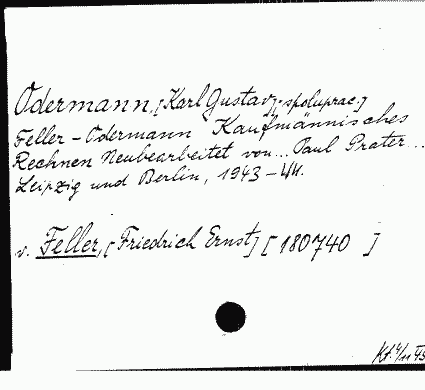 Odermann, [Karl Gustav; spoluprac.]
Feller - Odermann Kaufmännisches
Rechnen Neubearbeitet von... Paul Prater...
Leipzig und Berlin, 1943-44.
v. Feller, [Friedrich Ernst] [180740 ]